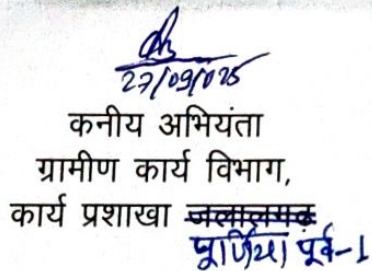 27/09/025
कनीय अभियंता
ग्रामीण कार्य विभाग,
कार्य प्रशाखा जलालगढ़
पूर्णिया पूर्व-1